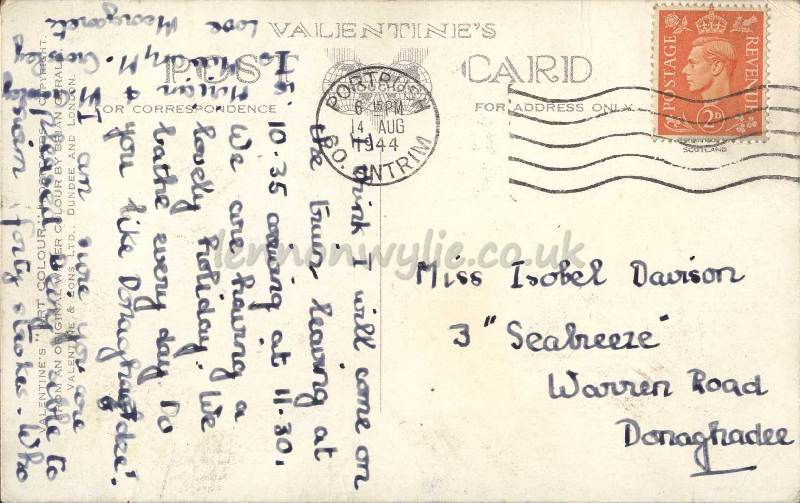 VALENTINE'S
POST CARD
FOR CORRESPONDENCE
FOR ADDRESS ONLY
SCOTLAND
POSTAGE REVENUE
2D
PORTRUSH
6 15 PM
14 AUG
1944
CO. ANTRIM
I think I will come on
the train leaving at
10.35 arriving at 11.30.
We are having a
lovely holiday. We
bathe every day. Do
you like Donaghadee?
I am sure you are
pleased being able to
swim forty strokes. Who
Love
Margaret
Miss Isobel Davison
3 "Seabreeze"
Warren Road
Donaghadee
VALENTINE'S "ART COLOUR" COPYRIGHT.
FROM AN ORIGINAL WATER COLOUR BY BRIAN GERALD.
VALENTINE & SONS LTD., DUNDEE AND LONDON.
lennonwylie.co.uk